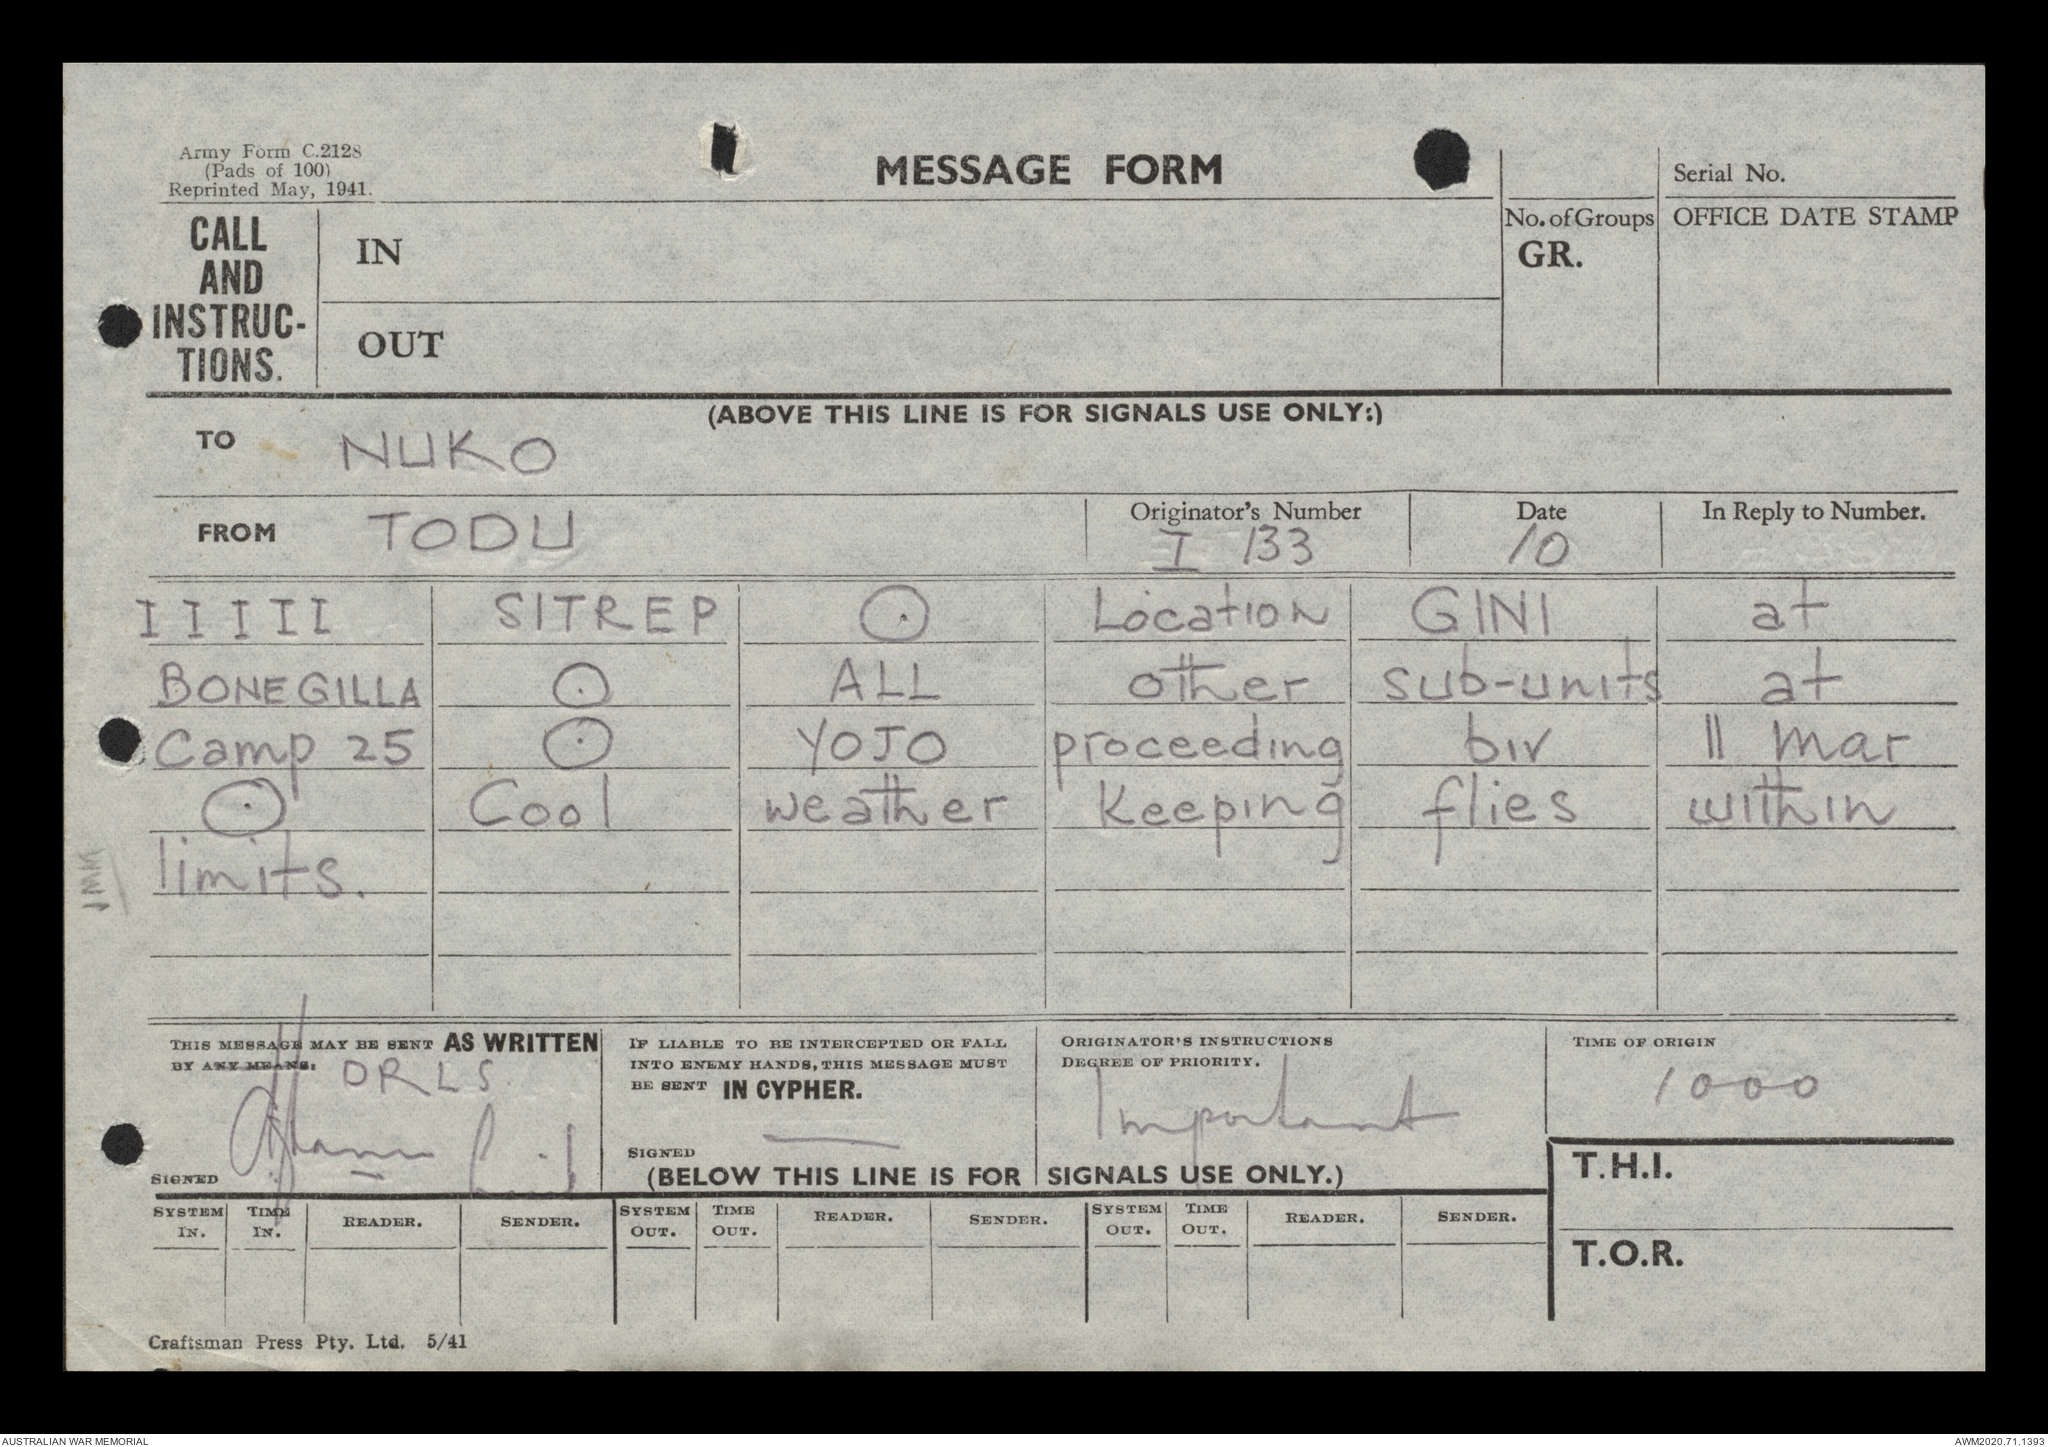 Army Form C.2128
(Pads of 100)
Reprinted May, 1941.
MESSAGE FORM
Serial No.
CALL AND INSTRUC-TIONS.
IN
OUT
No. of Groups
GR.
OFFICE DATE STAMP
(ABOVE THIS LINE IS FOR SIGNALS USE ONLY:)
TO NUKO
FROM TODU
Originator's Number
I 133
Date
10
In Reply to Number.
IIIII SITREP ⊙ Location GINI at
BONEGILLA ⊙ ALL other sub-units at
Camp 25 ⊙ YOJO proceeding biv 11 Mar
⊙ Cool weather keeping flies within
limits.
THIS MESSAGE MAY BE SENT AS WRITTEN
BY ANY MEANS:
DRLS.
SIGNED
IF LIABLE TO BE INTERCEPTED OR FALL
INTO ENEMY HANDS, THIS MESSAGE MUST
BE SENT IN CYPHER.
SIGNED
ORIGINATOR'S INSTRUCTIONS
DEGREE OF PRIORITY.
Important
TIME OF ORIGIN
1000
(BELOW THIS LINE IS FOR SIGNALS USE ONLY.)
T.H.I.
T.O.R.
SYSTEM IN. TIME IN. READER. SENDER. SYSTEM OUT. TIME OUT. READER. SENDER. SYSTEM OUT. TIME OUT. READER. SENDER.
Craftsman Press Pty. Ltd. 5/41
AUSTRALIAN WAR MEMORIAL
AWM2020.71.1393